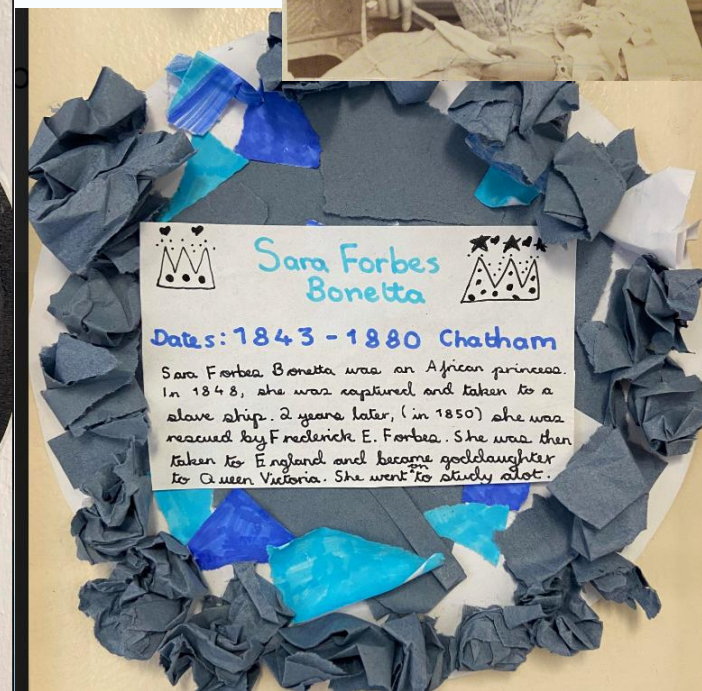 Sara Forbes
Bonetta
Dates: 1843 - 1880 Chatham
Sara Forbes Bonetta was an African princess.
In 1848, she was captured and taken to a
slave ship. 2 years later, (in 1850) she was
rescued by Frederick E. Forbes. She was then
taken to England and became goddaughter
to Queen Victoria. She went on to study alot.